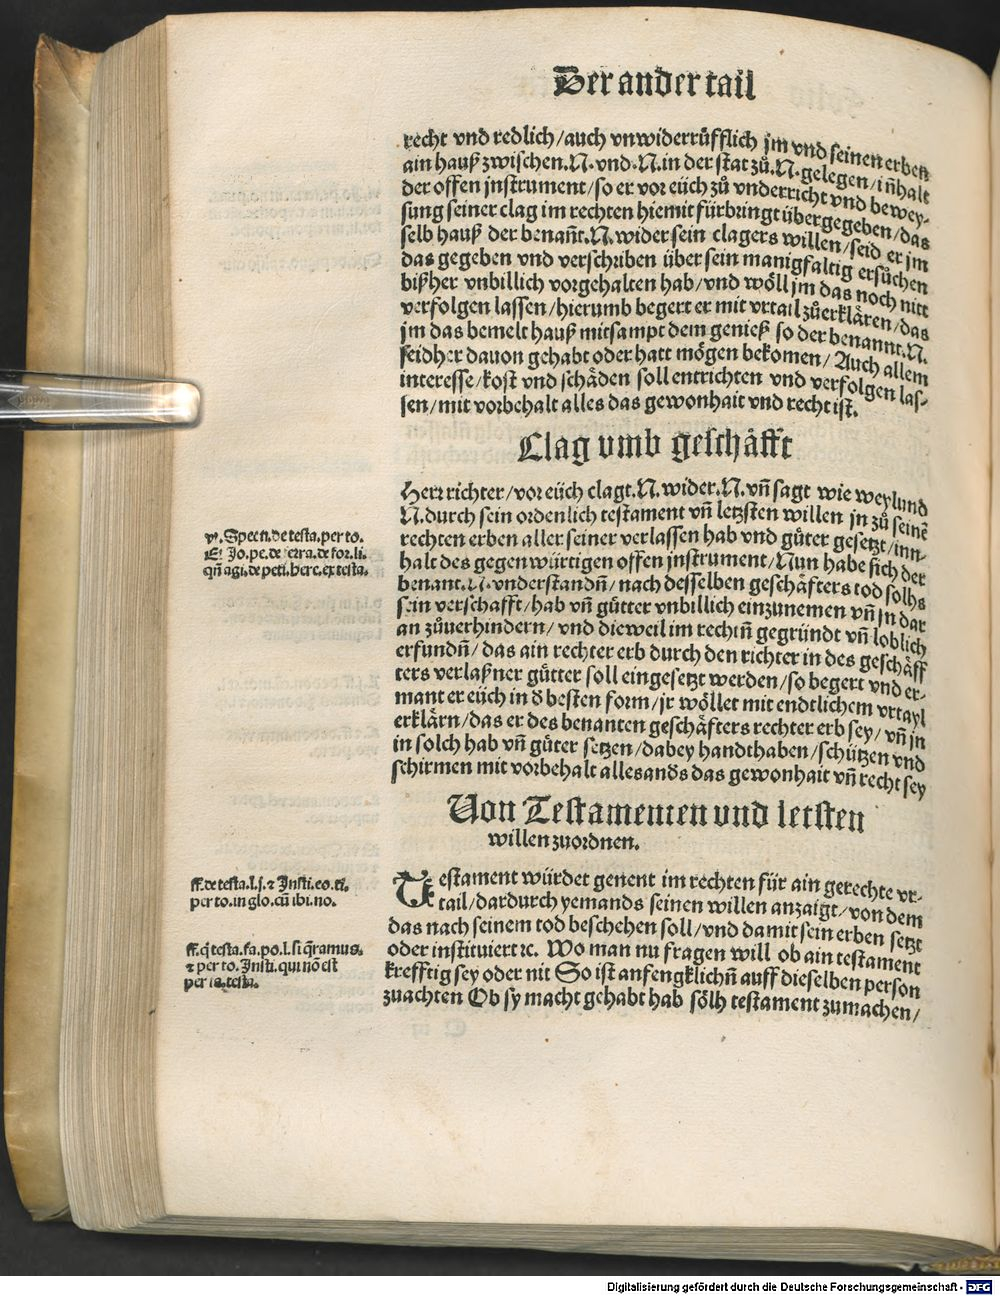 Der ander tail
recht vnd redlich/auch vnwiderrůfflich jm vnd seinen erben
ain hauß zwischen.N.vnd.N.in der stat zů.N.gelegen/iñhalt
der offen jnstrument/so er vor eüch zů vnderricht vnd bewey⸗
sung seiner clag im rechten hiemit fürbringt übergegeben/das
selb hauß der benañt.N.wider sein clagers willen/seid er jm
das gegeben vnd verschriben über sein manigfaltig ersůchen
bißher vnbillich vorgehalten hab/vnd wöll jm das noch nitt
verfolgen lassen/hierumb begert er mit vrtail zůerklåren/das
jm das bemelt hauß mitsampt dem genieß so der benannt.N.
seidher dauon gehabt oder hatt mögen bekomen/Auch allem
interesse/kost vnd schåden soll entrichten vnd verfolgen las⸗
sen/mit vorbehalt alles das gewonhait vnd recht ist.
Clag vmb geschåfft
Herr richter/vor eüch clagt.N.wider.N.vñ sagt wie weylund
N.durch sein ordenlich testament vñ letzsten willen jn zů seinẽ
rechten erben aller seiner verlassen hab vnd gůter gesetzt/inn⸗
halt des gegenwürtigen offen jnstrument/Nun habe sich der
benant.N.vnderstandñ/nach desselben geschåfters tod solhs
sein verschafft/hab vñ gůtter vnbillich einzunemen vñ jn dar
an zůuerhindern/vnd dieweil im rechtñ gegründt vñ loblich
erfundñ/das ain rechter erb durch den richter in des geschåff
ters verlaßner gůtter soll eingesetzt werden/so begert vnd er⸗
mant er eüch in d besten form/jr wöllet mit endtlichem vrtayl
erklårn/das er des benanten geschåfters rechter erb sey/vñ jn
in solch hab vñ gůter setzen/dabey handthaben/schützen vnd
schirmen mit vorbehalt allesands das gewonhait vñ recht sey
v. Spec. ti. de testa. per to.
Jo. pe. de ferra. de for. li.
qñ agi. de peti. here. ex testa.
Von Testamenten vnd letsten
willen zuordnen.
Testament würdet genent im rechten für ain gerechte vr⸗
tail/dardurch yemands seinen willen anzaigt/von dem
das nach seinem tod beschehen soll/vnd damit sein erben setzt
oder instituiert ꝛc. Wo man nu fragen will ob ain testament
krefftig sey oder nit So ist anfengklichñ auff dieselben person
zuachten Ob sy macht gehabt hab sölh testament zumachen/
ff. de testa. l. j. ꝛ Insti. eo. ti.
per to. in glo. cũ ibi. no.
ff. q̃ testa. fa. po. l. si q̃ramus.
ꝛ per to. Insti. qui nõ est
per . testa.
Digitalisierung gefördert durch die Deutsche Forschungsgemeinschaft - DFG